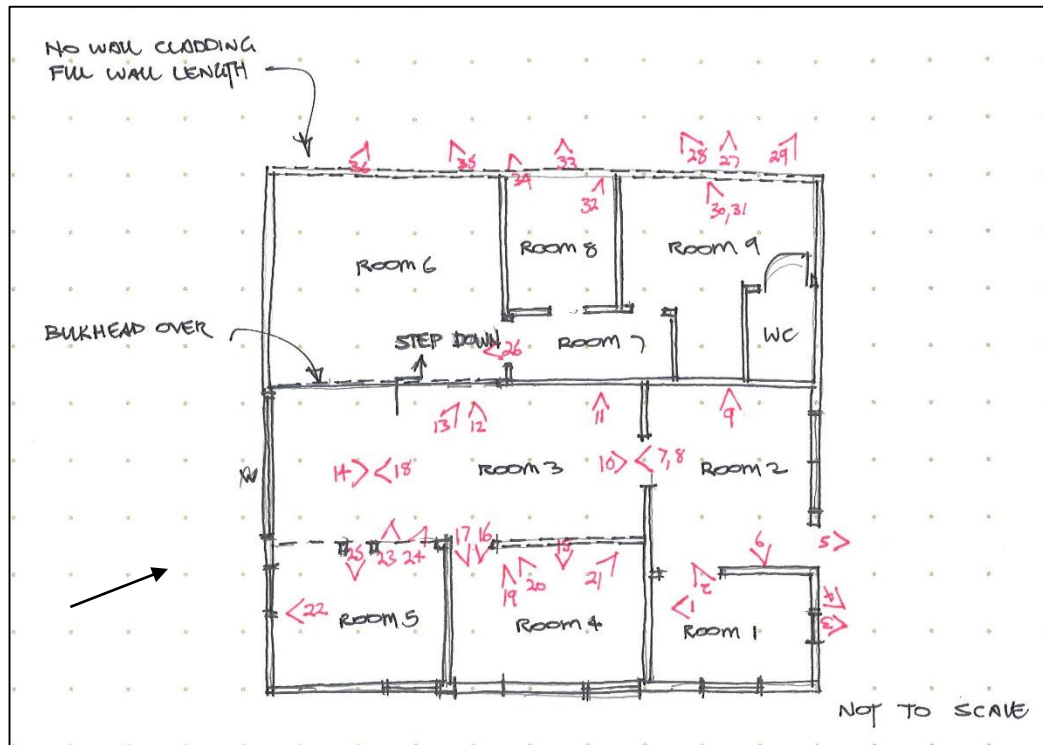 NO WALL CLADDING
FULL WALL LENGTH
36
35
34
33
28
27
29
32
30,31
ROOM 6
ROOM 8
ROOM 9
BULKHEAD OVER
STEP DOWN
26
ROOM 7
WC
13
12
11
9
14
18
ROOM 3
10
7,8
ROOM 2
17
16
15
6
5
25
23
24
19
20
21
2
22
1
4
3
ROOM 5
ROOM 4
ROOM 1
NOT TO SCALE